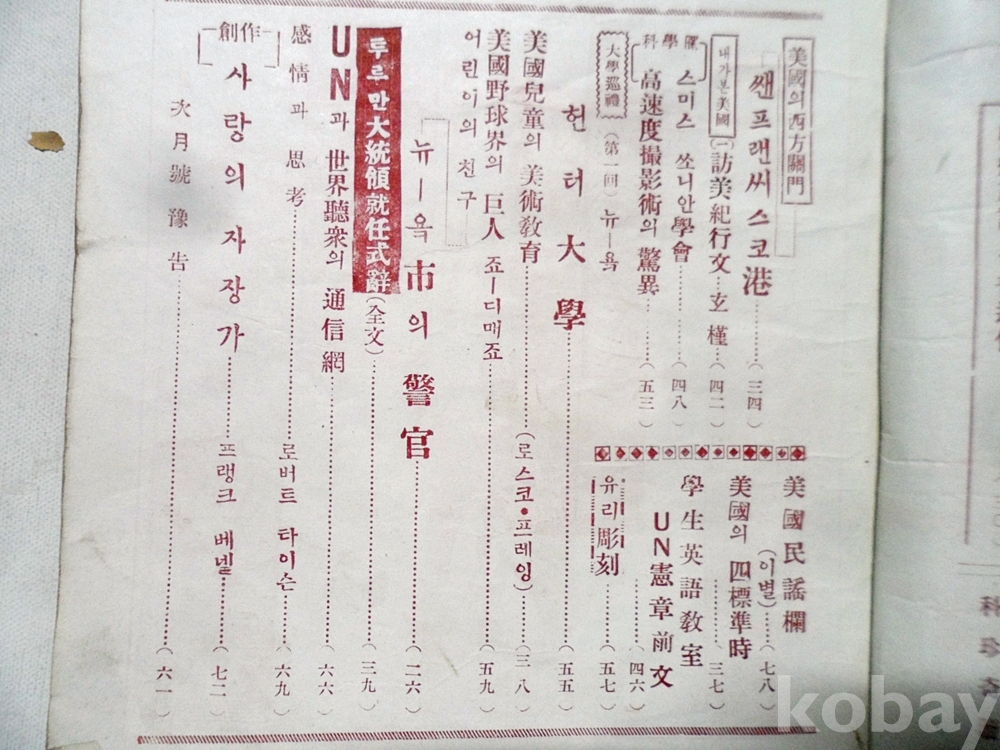 美國의 西方關門
쌘프랜씨스코港 (三四)
내가본美國
(一)訪美紀行文 玄 槿 (四二)
科學 스미스 쏘니안學會 (四八)
高速度撮影術의 驚異 (五三)
大學巡禮 (第一回) 뉴—욕
헌터大學 (五五)
美國兒童의 美術敎育 (로스코•프레잉) (三八)
美國野球界의 巨人 죠—디매죠 (五九)
어린이의 친구
뉴—욕市의 警官 (二六)
투루만大統領就任式辭(全文) (三九)
UN과 世界聽衆의 通信網 (六六)
感情과 思考 로버트 타이슨 (六九)
創作
사랑의 자장가 프랭크 베넬 (七二)
次月號豫告 (六一)
美國民謠欄
(이별) (七八)
美國의 四標準時 (三七)
學生英語敎室
UN憲章前文 (四六)
유리彫刻 (五七)
kobay